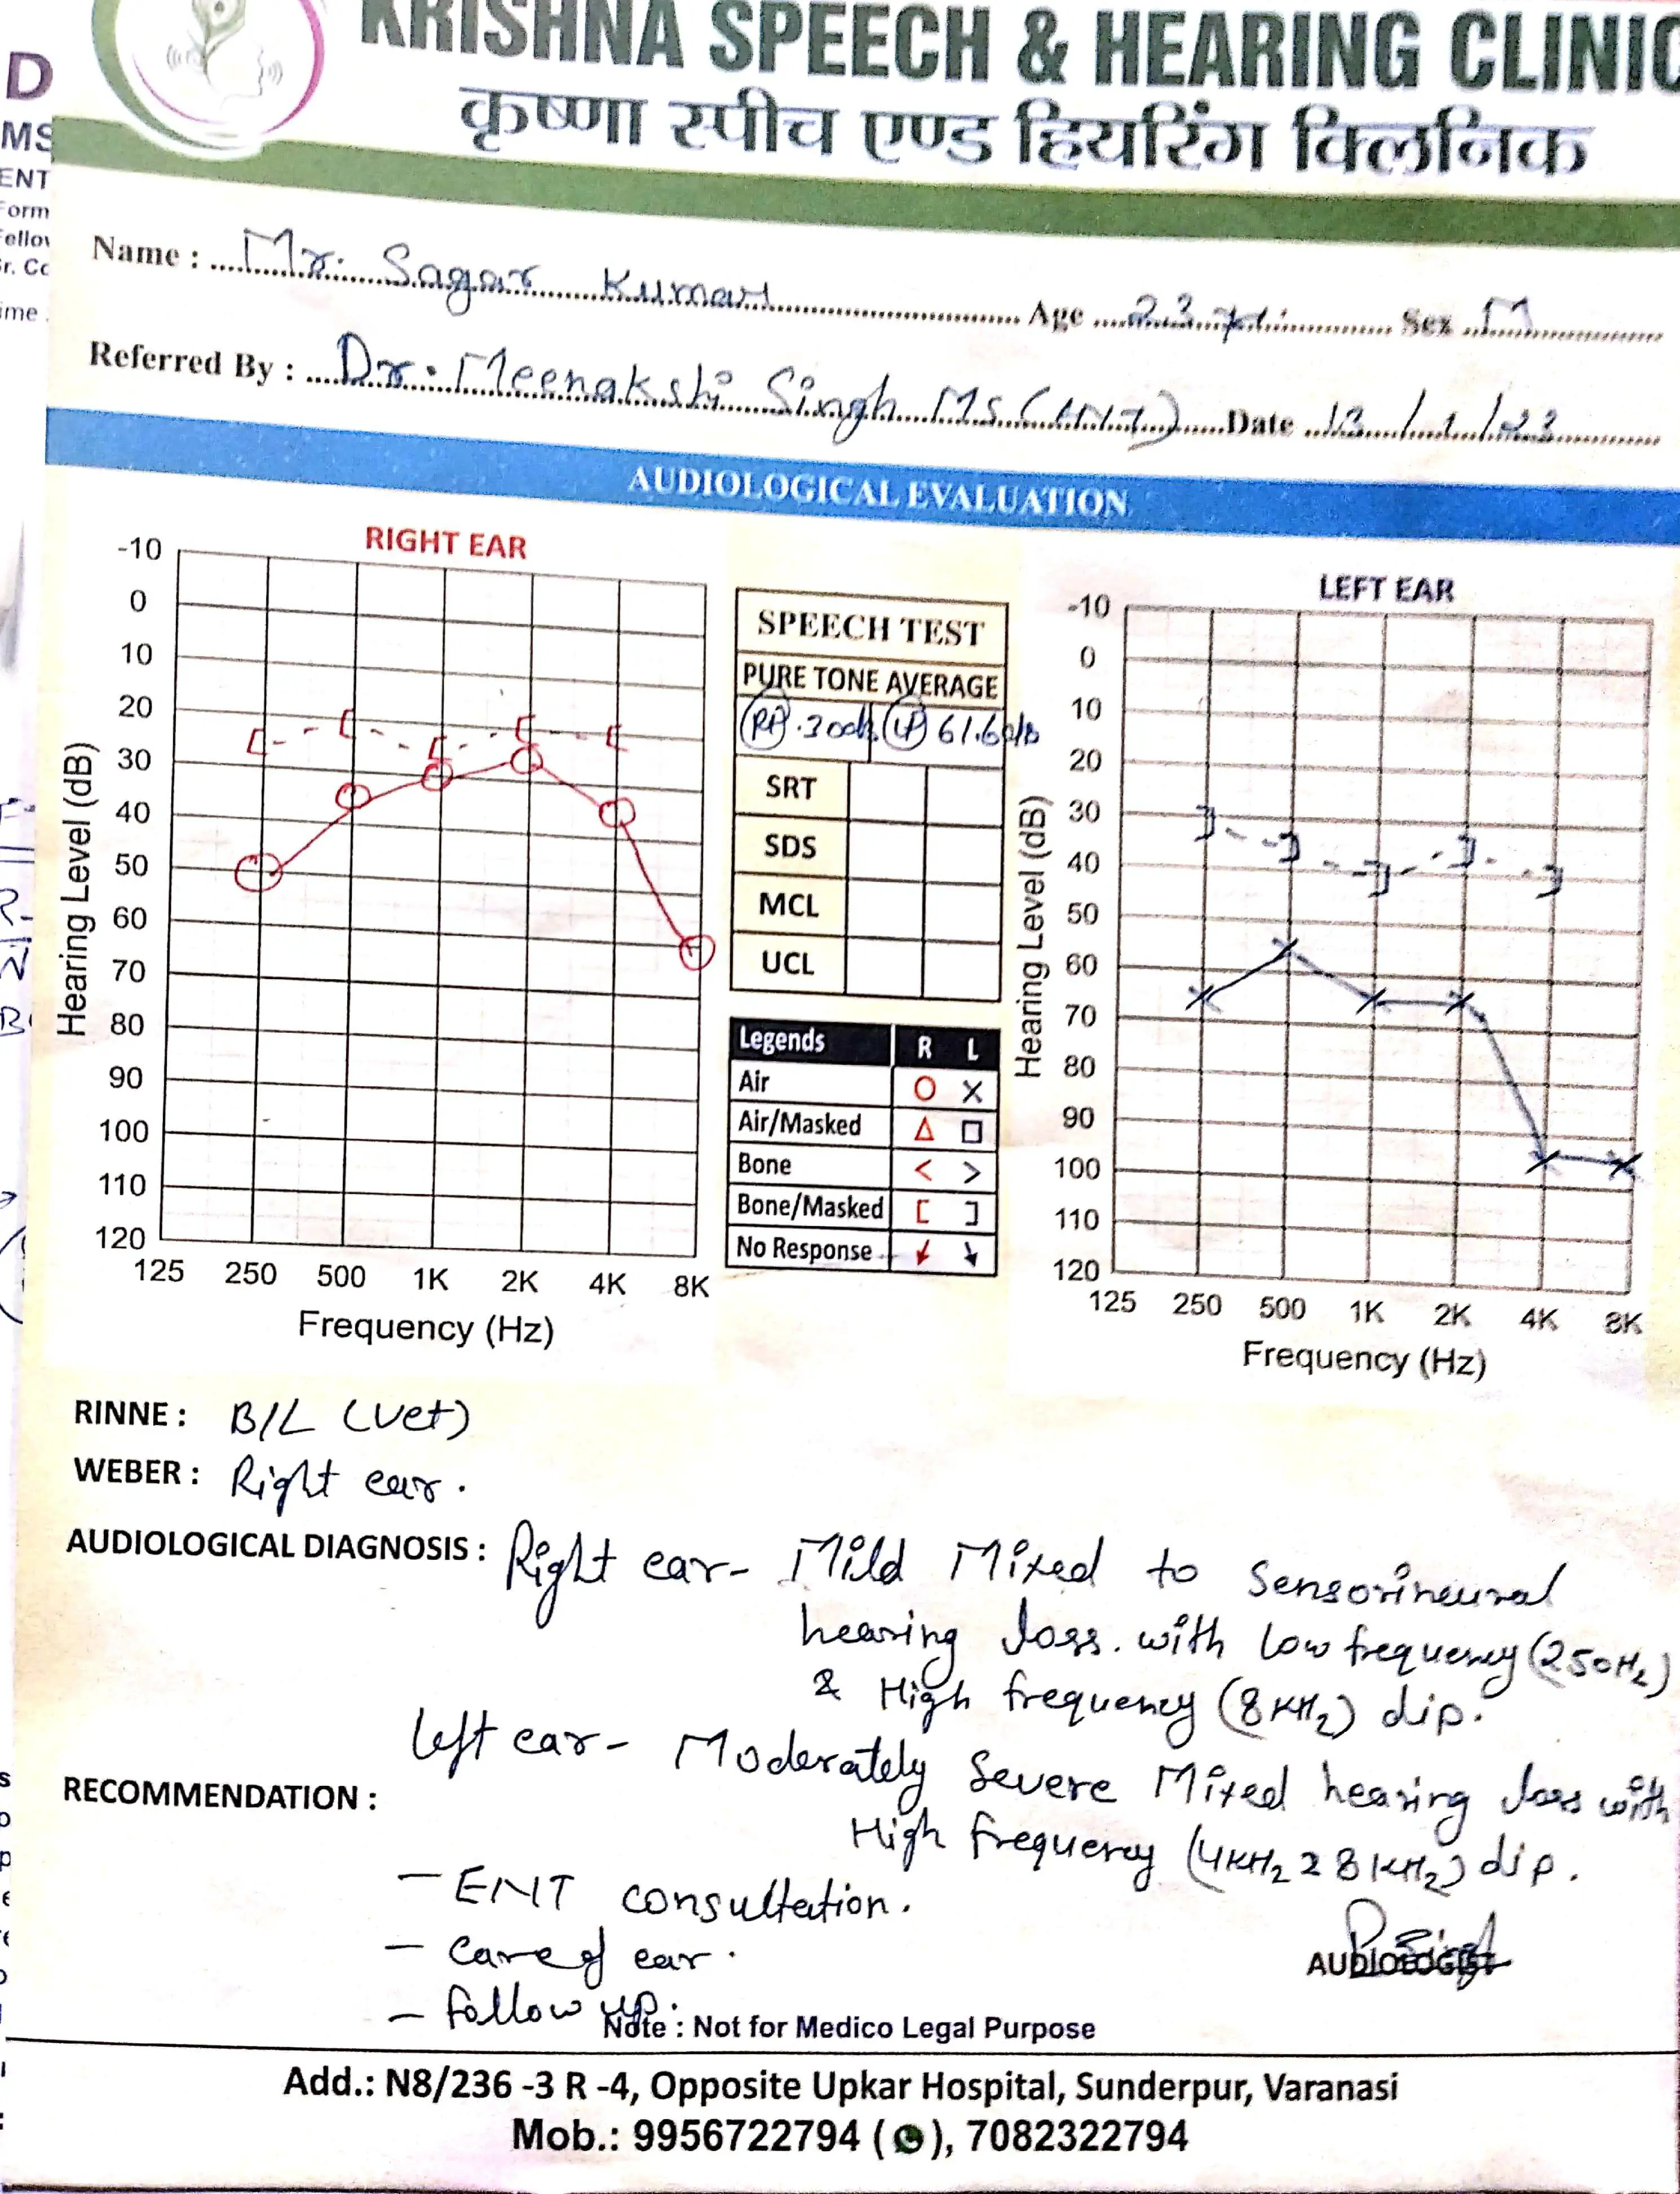 KRISHNA SPEECH & HEARING CLINIC
कृष्णा स्पीच एण्ड हियरिंग क्लिनिक
D
MS
ENT
Form
Fellow
Sr. Co
ime
Name : Mr. Sagar Kumar Age 23 yr Sex M
Referred By : Dr. Meenakshi Singh Ms (ENT) Date 13/1/23
AUDIOLOGICAL EVALUATION
RIGHT EAR
-10
0
10
20
30
40
50
60
70
80
90
100
110
120
Hearing Level (dB)
125 250 500 1K 2K 4K 8K
Frequency (Hz)
SPEECH TEST
PURE TONE AVERAGE
61.6 dB
SRT
SDS
MCL
UCL
Legends R L
Air O X
Air/Masked Δ □
Bone < >
Bone/Masked [ ]
No Response
LEFT EAR
-10
0
10
20
30
40
50
60
70
80
90
100
110
120
Hearing Level (dB)
125 250 500 1K 2K 4K 8K
Frequency (Hz)
RINNE : B/L
WEBER : Right ear.
AUDIOLOGICAL DIAGNOSIS : Right ear- Mild Mixed to Sensorineural
hearing loss. with low frequency (250Hz)
& High frequency (8KHz) dip.
left ear- Moderately Severe Mixed hearing loss with
High frequency (4KHz & 8KHz) dip.
RECOMMENDATION :
- ENT consultation.
- Care of ear.
- follow up.
AUDIOLOGIST
Note : Not for Medico Legal Purpose
Add.: N8/236 -3 R -4, Opposite Upkar Hospital, Sunderpur, Varanasi
Mob.: 9956722794 ( ), 7082322794